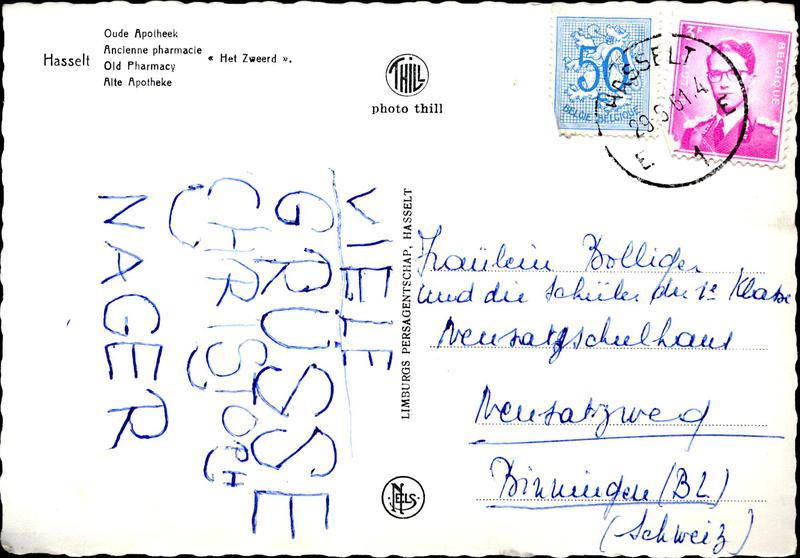 Oude Apotheek
Ancienne pharmacie
Hasselt Old Pharmacy « Het Zweerd ».
Alte Apotheke
THILL
photo thill
50
BELGIE-BELGIQUE
3F
BELGIQUE
HASSELT
E 1 E
VIELE
GRÜSSE
CHRISTOPH
NAGER
LIMBURGS PERSAGENTSCHAP, HASSELT
NELS
Fräulein Bolliger
und die Schüler der 1e Klasse
Neusatzschulhaus
Neusatzweg
Binningen (BL)
(Schweiz)